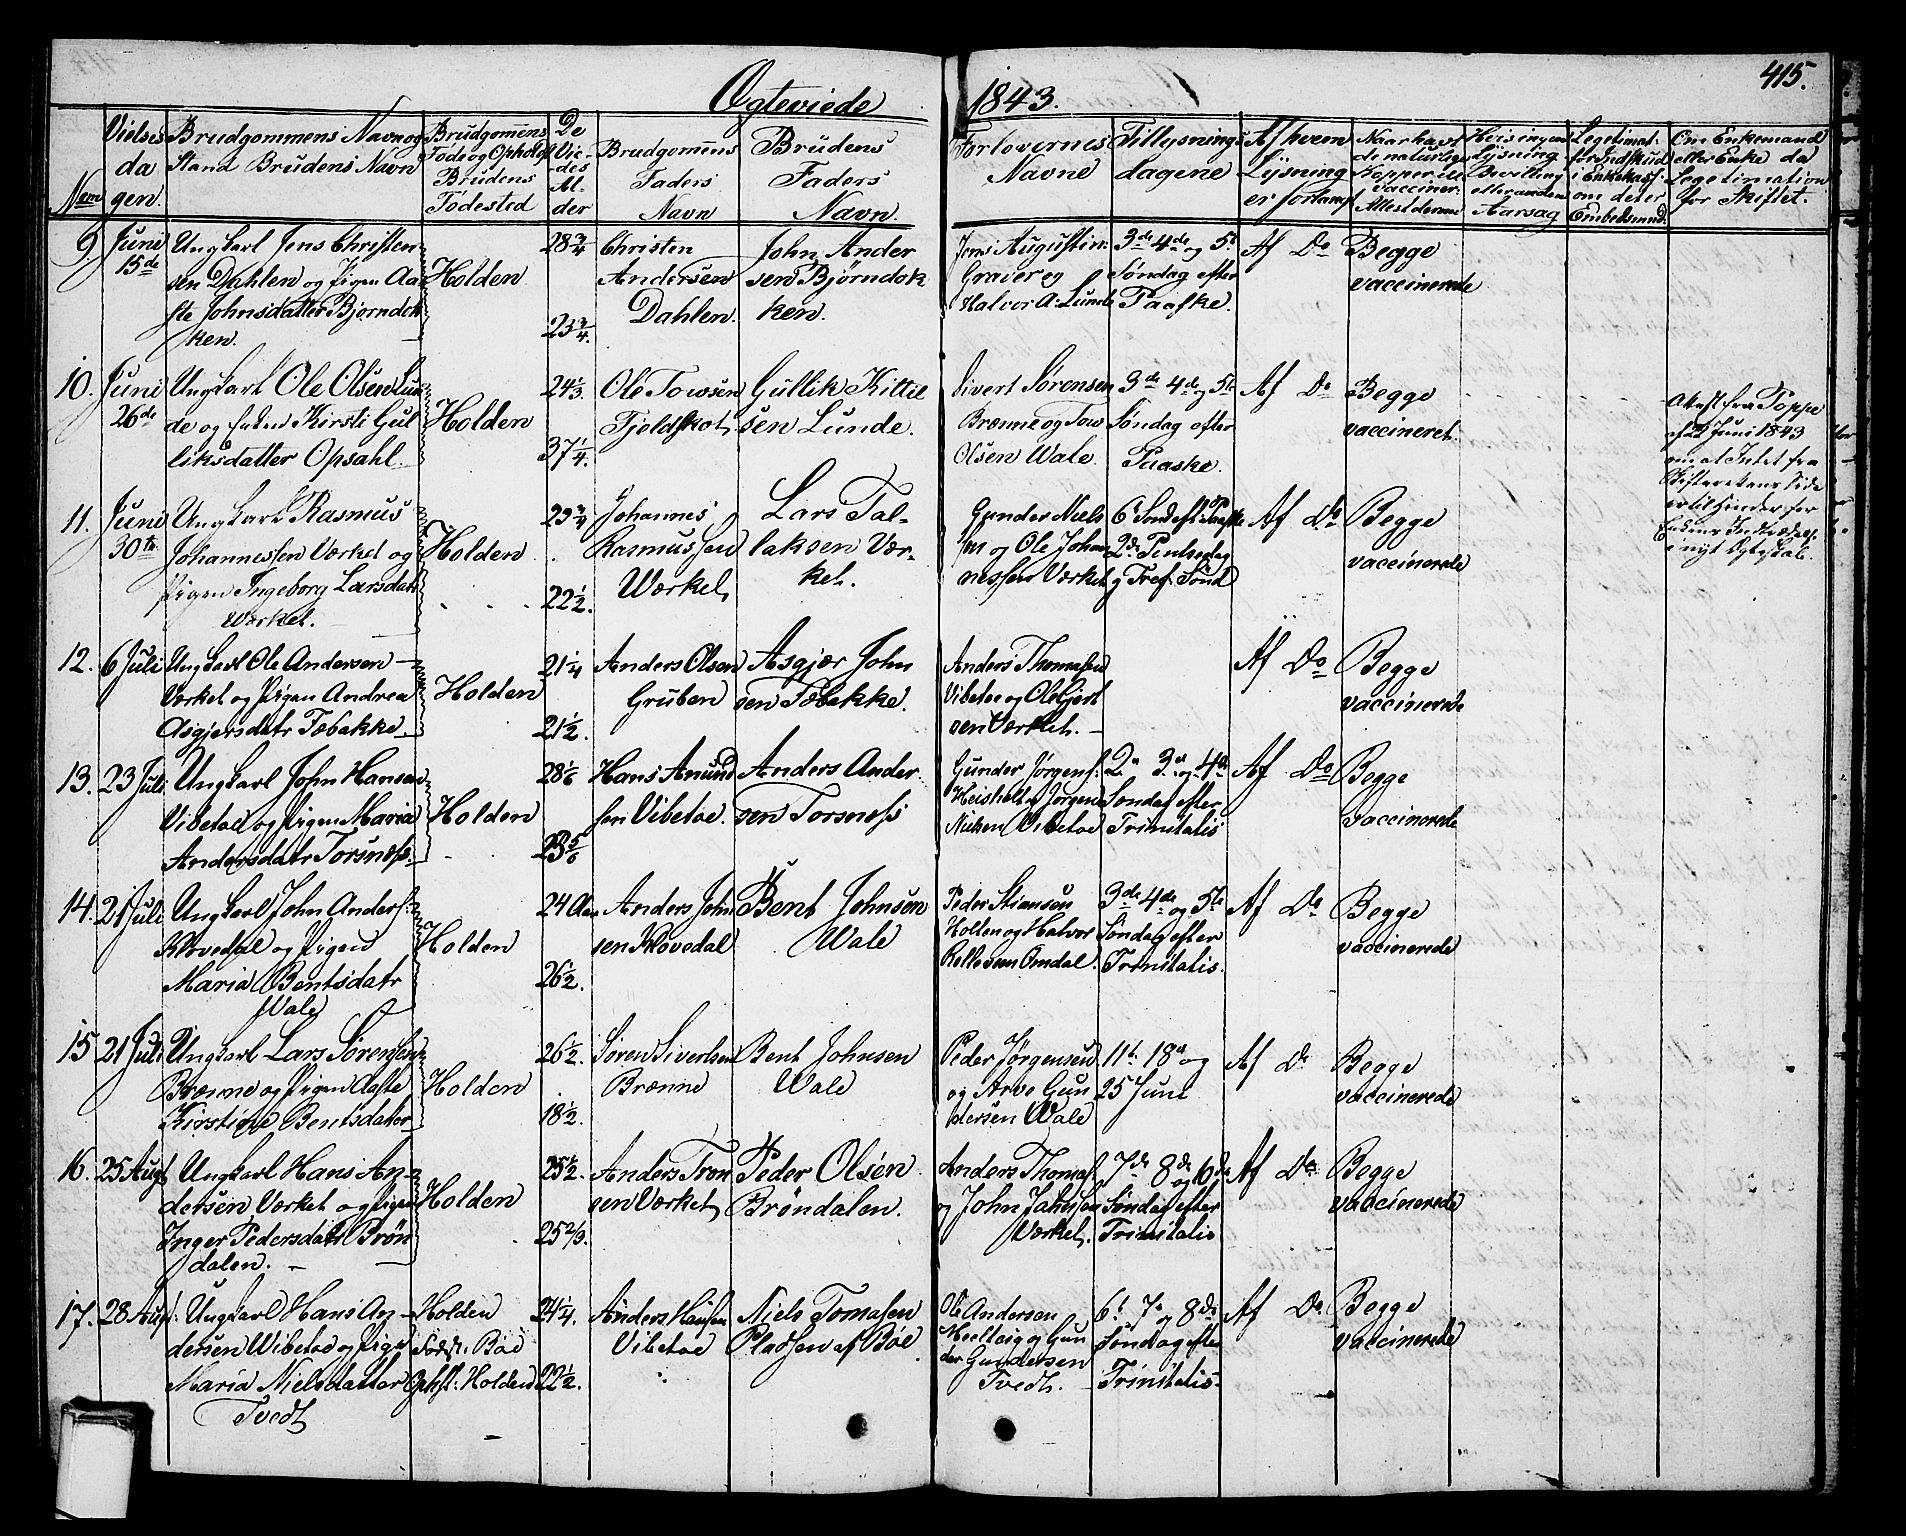 415.
Ægteviede 1843.
Num
Vielses
da
gen.
Brudgommens Navn og
Stand Brudens Navn
Brudgomens
Føde og Opholds
Brudens
Fødested
De
Vie-
des
Al-
der
Brudgomens
Faders
Navn
Brudens
Faders
Navn.
Forlovernes
Navne
Tillysnings
dagene
Af hvem
Lysning
er forlangt
Naar havt
de naturlige
Kopper ell.
vacciner.
Attest derom
Hvis ingen
Lysning
Bevilling
eller anden
Aarsag
Legetimat:
for Indskud
i Enkekass:
om det er
Embedsmd:
Om Enkemand
eller Enke da
Legetimation
for Skiftet.
9. Juni
15de
Ungkarl Jens Christen
sen Dahlen og Pigen Aa
ste Johnsdatter Bjørndok
ken.
Holden
28 3/4
23 3/4.
Christen
Andersen
Dahlen.
John Ander
sen Bjørndok
ken.
Jens Augustin:
Graver og
Halvor A: Lunde
3de 4de og 5t
Søndag efter
Paaske.
Af Do
Begge
vaccinerede
10. Juni
26de
Ungkarl Ole Olsen Lun
de og Enken Kirsti Gul
liksdatter Opsahl.
Holden
24 1/3.
37 1/4.
Ole Towsen
Fjeldskot
Gullik Kittil
sen Lunde.
Sivert Sørensen
Brenne og Tow
Olsen Wale.
3de 4de og 5te
Søndag efter
Paaske.
Af Do
Begge
vaccineret.
Attest fra Toppe
af 22 Juni 1843
om at Intet fra
Skifterettens Side
er til Hinder for
Enkens Indtrædelse
i nyt Ægteskab.
11. Juni
30te
Ungkarl Rasmus
Johannessen Værket og
Pigen Ingeborg Larsdatr
Værket.
Holden
23 3/4
22 1/2.
Johannes
Rasmussen
Wærket
Lars Tal-
laksen Vær-
ket.
Gunder Niels
sen og Ole Johan
nessen Værket
6t Sønd eft Paaske
2de Pintsedag
og Tref: Sønd
Af Do
Begge
vaccinerede
12. 6 Juli
Ungkarl Ole Andersen
Værket og Pigen Andrea
Asgjersdatr Tobakke.
Holden
21 1/4
21 1/2.
Anders Olsen
Gruben
Asgjær John
sen Tobakke.
Anders Thomasen
Vibetoe og Ole Gjert
sen Værket.
Af Do
Begge
vaccinerede
13. 23 Juli
Ungkarl John Hansen
Vibetoe og Pigen Maria
Andersdatr Torsnæss.
Holden
28 1/6
23 5/6
Hans Amund
sen Vibetoe.
Anders Ander
sen Torsnæss
Gunder Jørgens:
Heisholt og Jørgen
Nielsen Vibetoe
2n 3d og 4de
Søndag efter
Trinitatis
Af Do
Begge
Vaccinerede
14. 21 Juli
Ungkarl John Anders:
Kløvedal og Pigen
Maria Bentsdatr
Wale
Holden
24 Aar
26 1/2.
Anders John
sen Kløvedal
Bent Johnsen
Wale
Peder Stiansen
Holten og Halvor
Rollevsen Omdal.
3de 4de og 5te
Søndag efter
Trinitatis.
Af Do
Begge
vaccinerede
15 21 Juli
Ungkarl Lars Sørensen
Brænne og Pigen Aaste
Kirstine Bentsdater
Holden
26 1/2.
18 1/2.
Søren Sivertsen
Brænne
Bent Johnsen
Wale
Peder Jørgensen
og Arve Gun
dersen Wale
11t 18d og
25 Juni
Af Do
Begge
vaccinerede
16. 25 Augt
Ungkarl Hans An-
dersen Værket og Pigen
Inger Pedersdatr Brøn
dalen.
Holden
25 1/2.
25 2/9.
Anders Tron
sen Værket
Peder Olsen
Brøndalen.
Anders Thomas:
og John Jahnsen
Værket.
7de 8de og 6de
Søndag efter
Trinitatis
Af Do
Begge
vaccinerede
17. 28 Aug:
Ungkarl Hans An-
dersen Wibetoe og Pige
Maria Nielsdatter
Tvedt
Holden
Fødst: Bøe
Ophst: Holden
24 1/4.
22 1/2.
Anders Hansen
Vibetoe
Niels Tomasen
Pladsen af Bøe
Ole Andersen
og Gun
der Gundersen
Tvedt.
6t 7e og 8de
Søndag efter
Trinitatis.
Af Do
Begge
vaccinerede